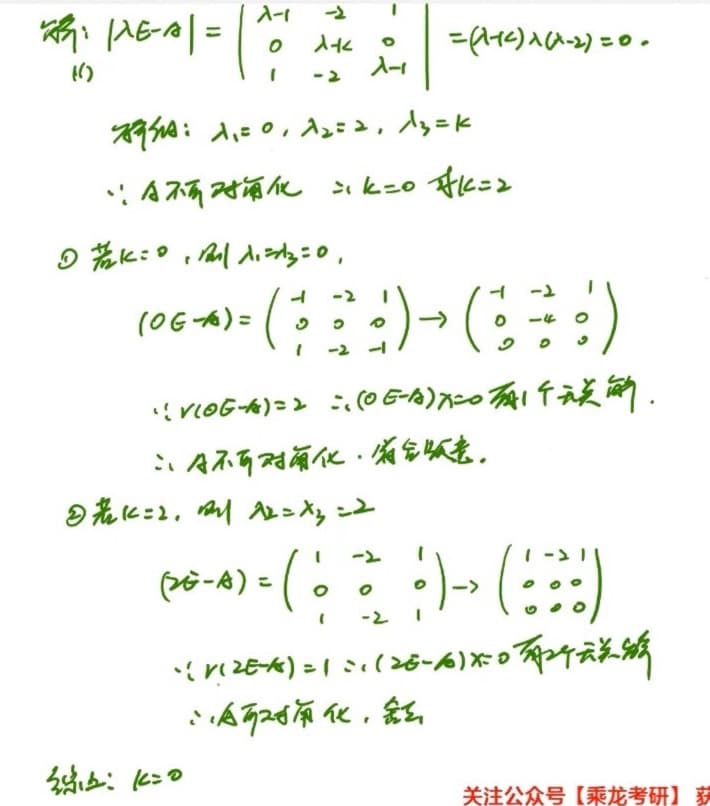 解: |λE-A| = | λ-1 -2 1 | = (λ-k)λ(λ-2) = 0 .
| 0 λ-k 0 |
(1) | 1 -2 λ-1 |
解得: λ₁=0, λ₂=2, λ₃=k
∵ A不可对角化 ∴ k=0 或k=2
① 若k=0, 则 λ₁=λ₃=0,
(0E-A) = ( -1 -2 1 ) → ( -1 -2 1 )
( 0 0 0 ) ( 0 -4 0 )
( 1 -2 -1 ) ( 0 0 0 )
∵ r(0E-A)=2 ∴ (0E-A)x=0 有1个无关解.
∴ A不可对角化. 符合题意.
② 若k=2, 则 λ₂=λ₃=2
(2E-A) = ( 1 -2 1 ) → ( 1 -2 1 )
( 0 0 0 ) ( 0 0 0 )
( 1 -2 1 ) ( 0 0 0 )
∵ r(2E-A)=1 ∴ (2E-A)x=0 有2个无关解
∴ A可对角化, 舍去
综上: k=0
关注公众号【乘龙考研】获